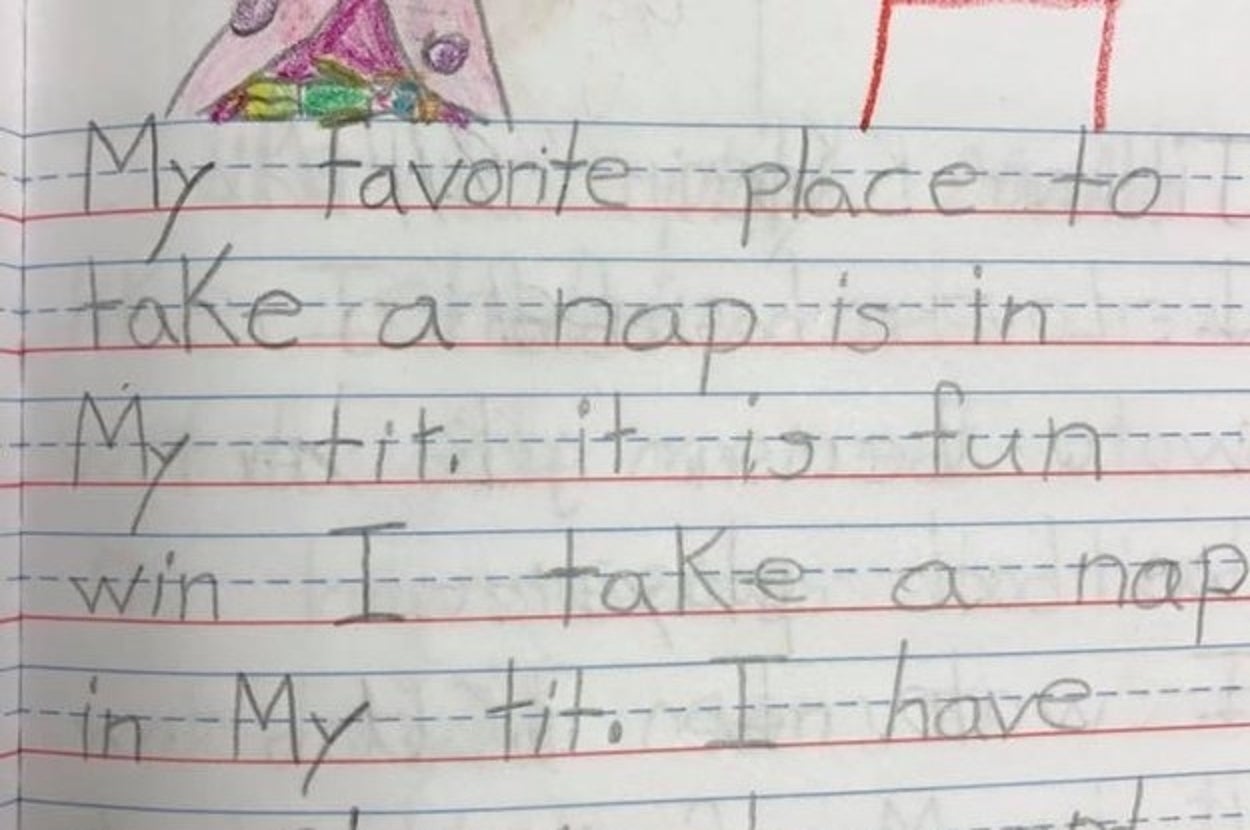 My favorite place to
take a nap is in
My tit. it is fun
win I take a nap
in My tit. I have